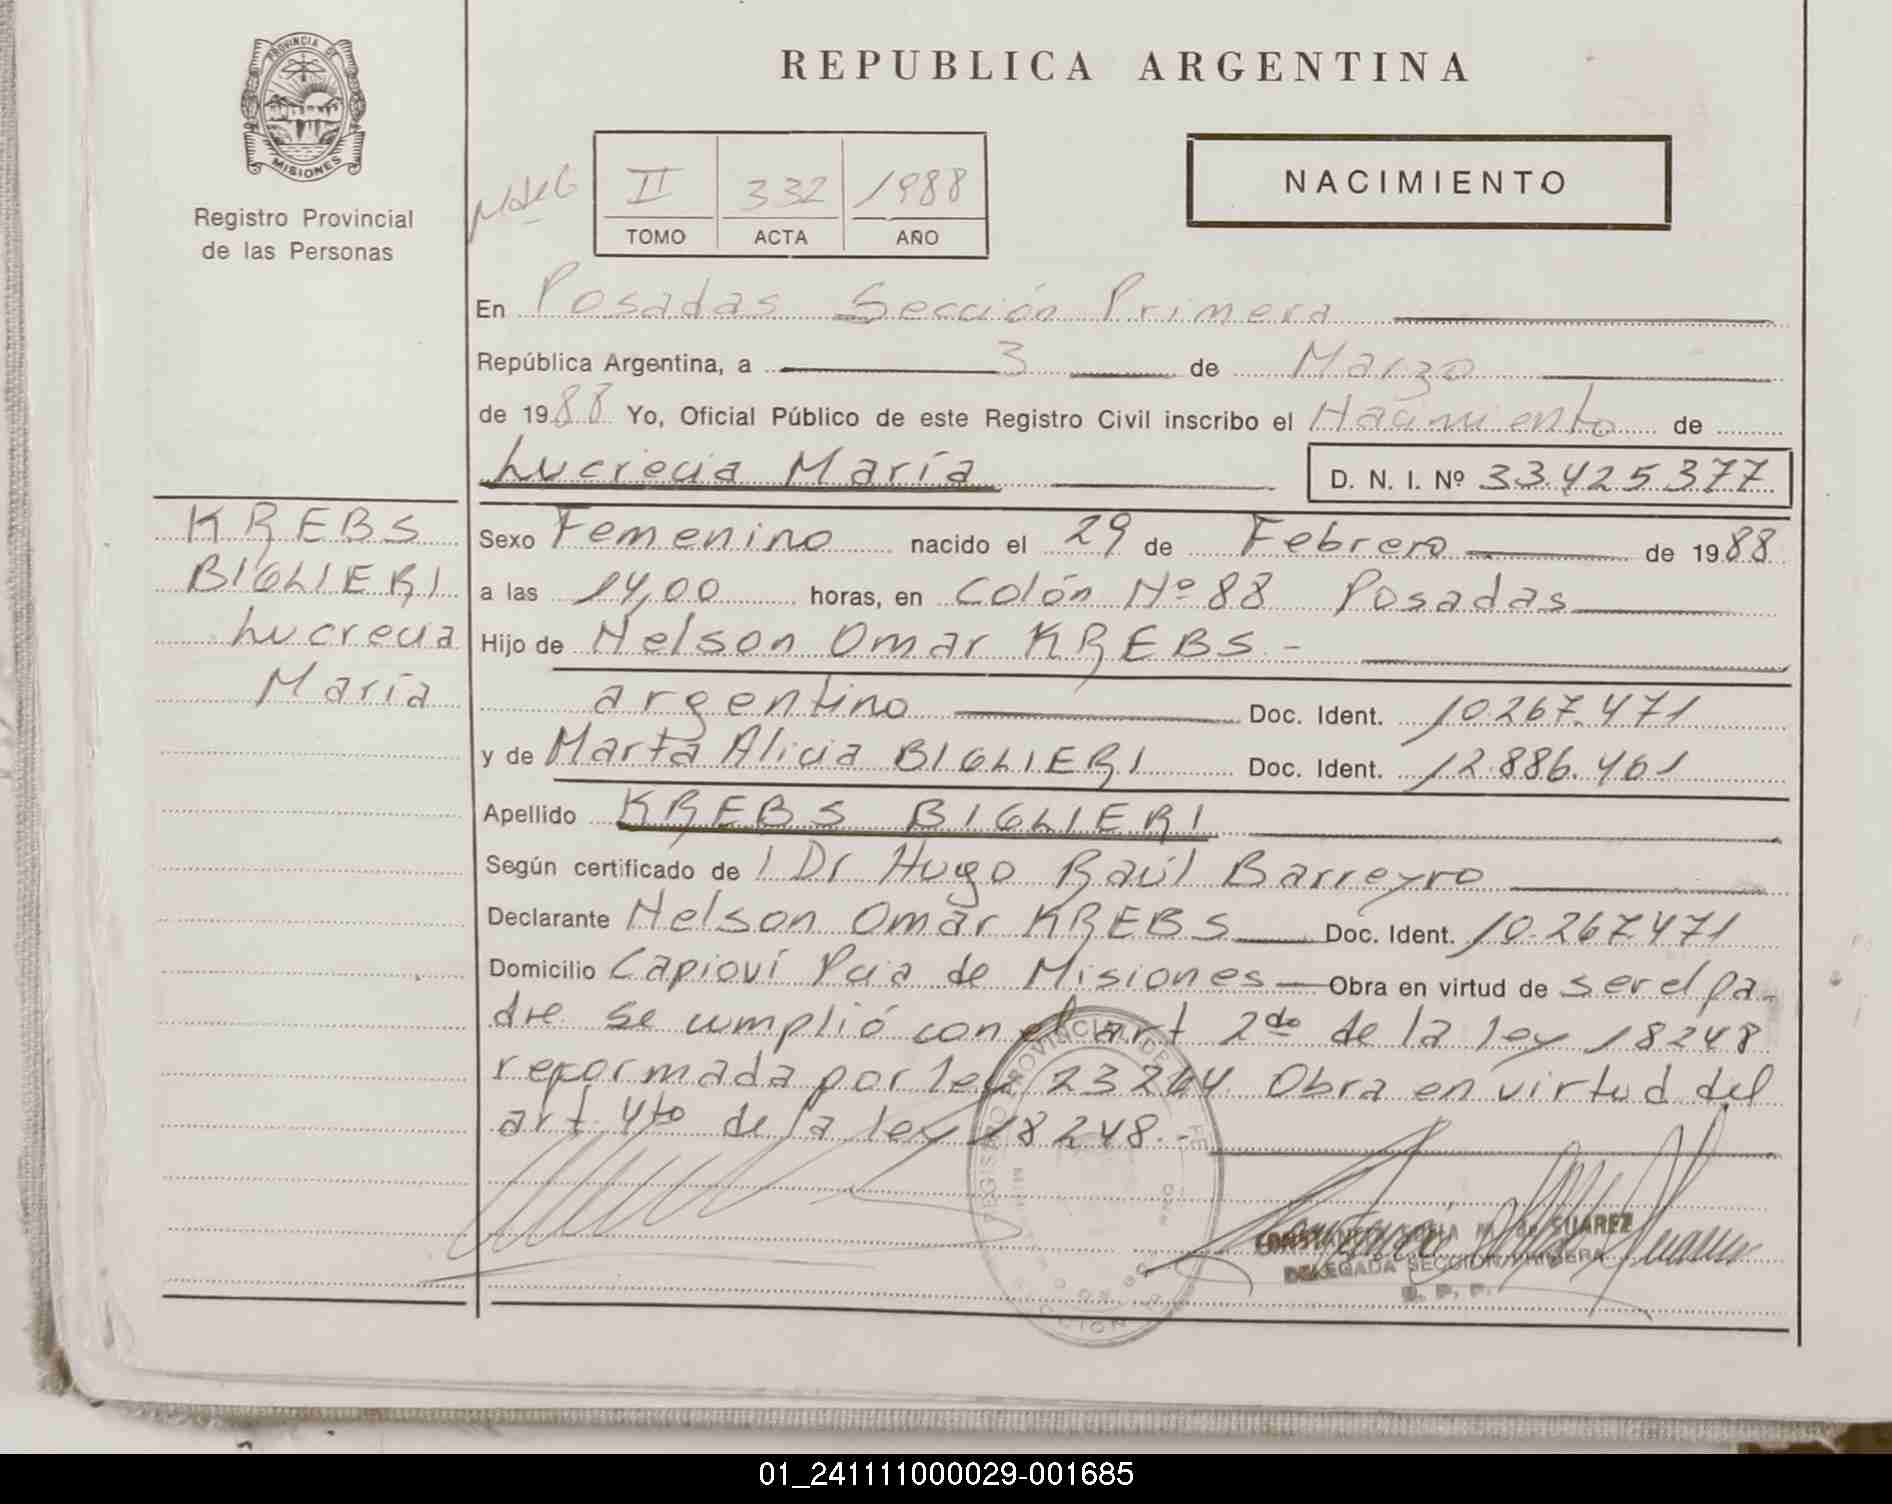 PROVINCIA DE
MISIONES
Registro Provincial
de las Personas
REPUBLICA ARGENTINA
II 332 1988
TOMO ACTA AÑO
NACIMIENTO
En Posadas Sección Primera
República Argentina, a 3 de Marzo
de 1988 Yo, Oficial Público de este Registro Civil inscribo el Nacimiento de
Lucrecia María D. N. I. Nº 33.425377
KREBS
BIGLIERI
Lucrecia
María
Sexo Femenino nacido el 29 de Febrero de 1988
a las 14,00 horas, en Colón Nº 88 Posadas
Hijo de Nelson Omar KREBS -
argentino Doc. Ident. 10.267.471
y de Marta Alicia BIGLIERI Doc. Ident. 12.886.461
Apellido KREBS BIGLIERI
Según certificado de l Dr Hugo Raúl Barreyro
Declarante Nelson Omar KREBS Doc. Ident. 10.267.471
Domicilio Capioví Pcia de Misiones Obra en virtud de ser el pa-
dre se cumplió con el art 2do de la ley 18248
reformada por ley 23264. Obra en virtud del
art. 4to de la ley 18248.-
REGISTRO PROVINCIAL DE
SUAREZ
DELEGADA SECCION PRIMERA
R. P. P.
01_241111000029-001685